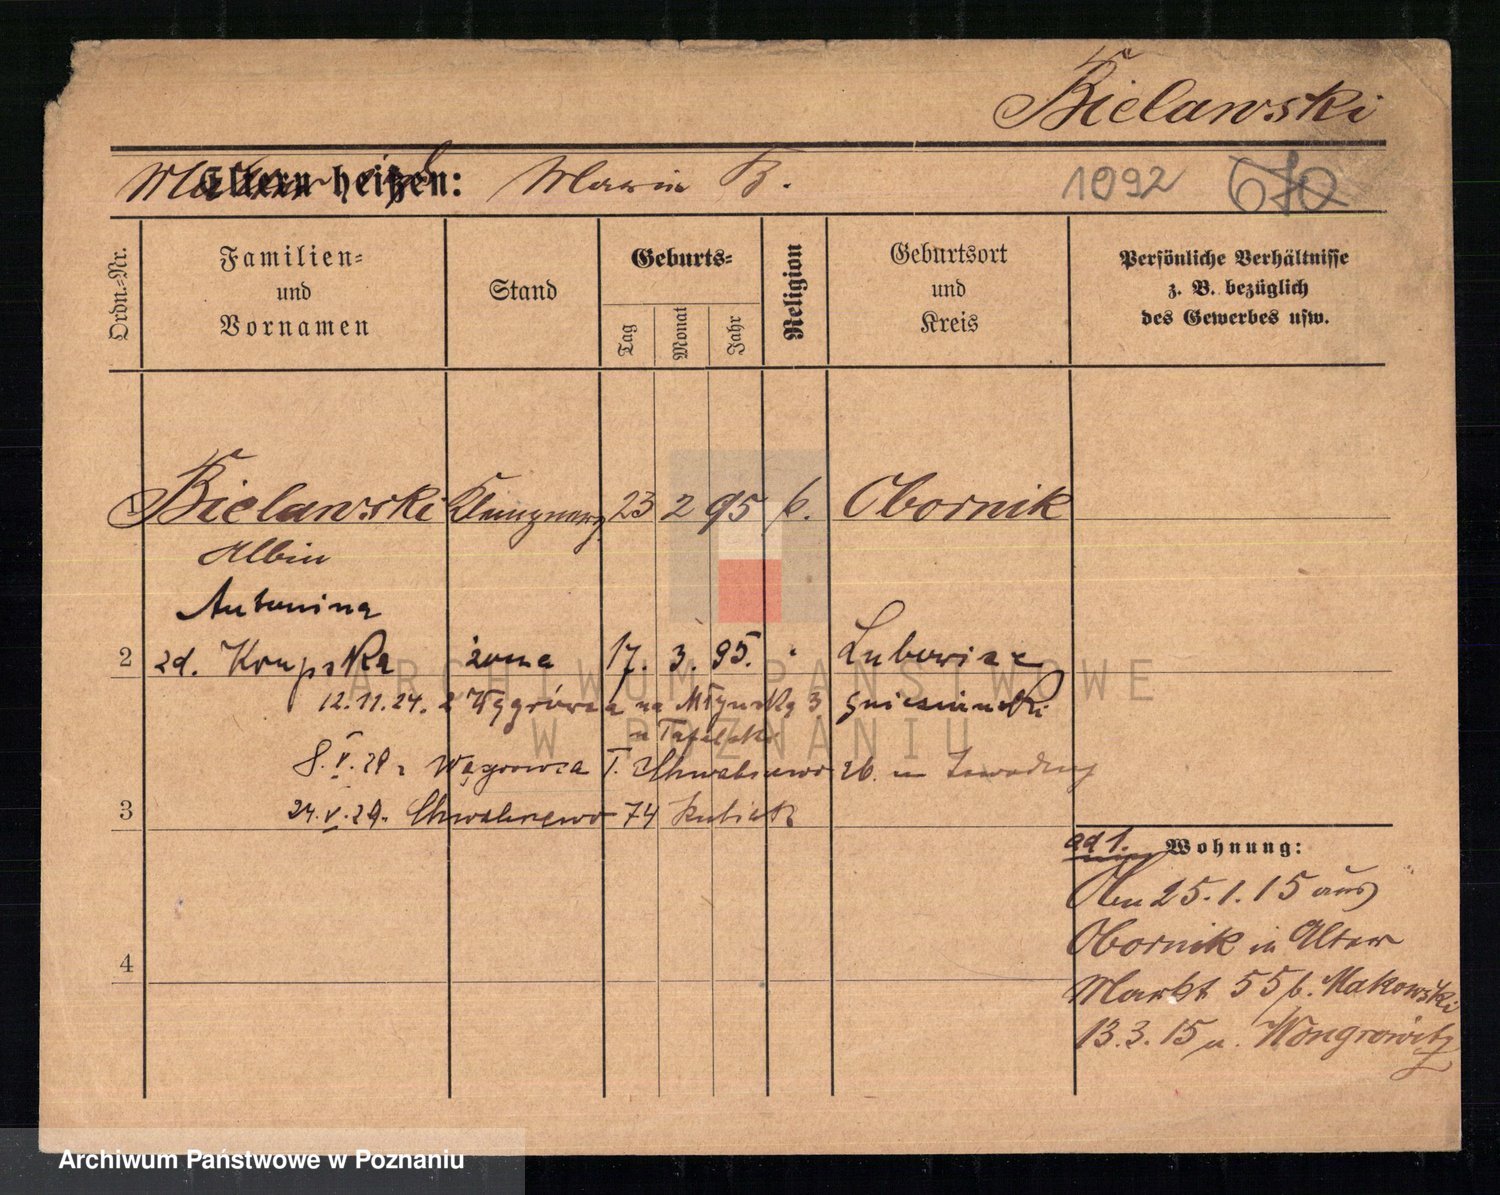 Bielawski
Eltern heißen: Maria B.
1092 670
Ordn.-Nr.
Familien-
und
Vornamen
Stand
Geburts-
Tag
Monat
Jahr
Religion
Geburtsort
und
Kreis
Persönliche Verhältnisse
z. B. bezüglich
des Gewerbes usw.
1 Bielawski 23 2 95 k. Obornik
Albin
Antonina
2 zd. Krupska żona 17. 3. 95. "
12.11.24. z Wągrówca na Młyńską 3 gnieźnieński
8.V.29 z Wągrowca Chwaliszewo 26.
3 24.V.29. Chwaliszewo 74 Kubiak
4
ad 1. Wohnung:
Am 25.1.15 aus
Obornik in Alter
Markt 55 b. Makowski
13.3.15 n. Wongrowitz
ARCHIWUM PAŃSTWOWE
W POZNANIU
Archiwum Państwowe w Poznaniu